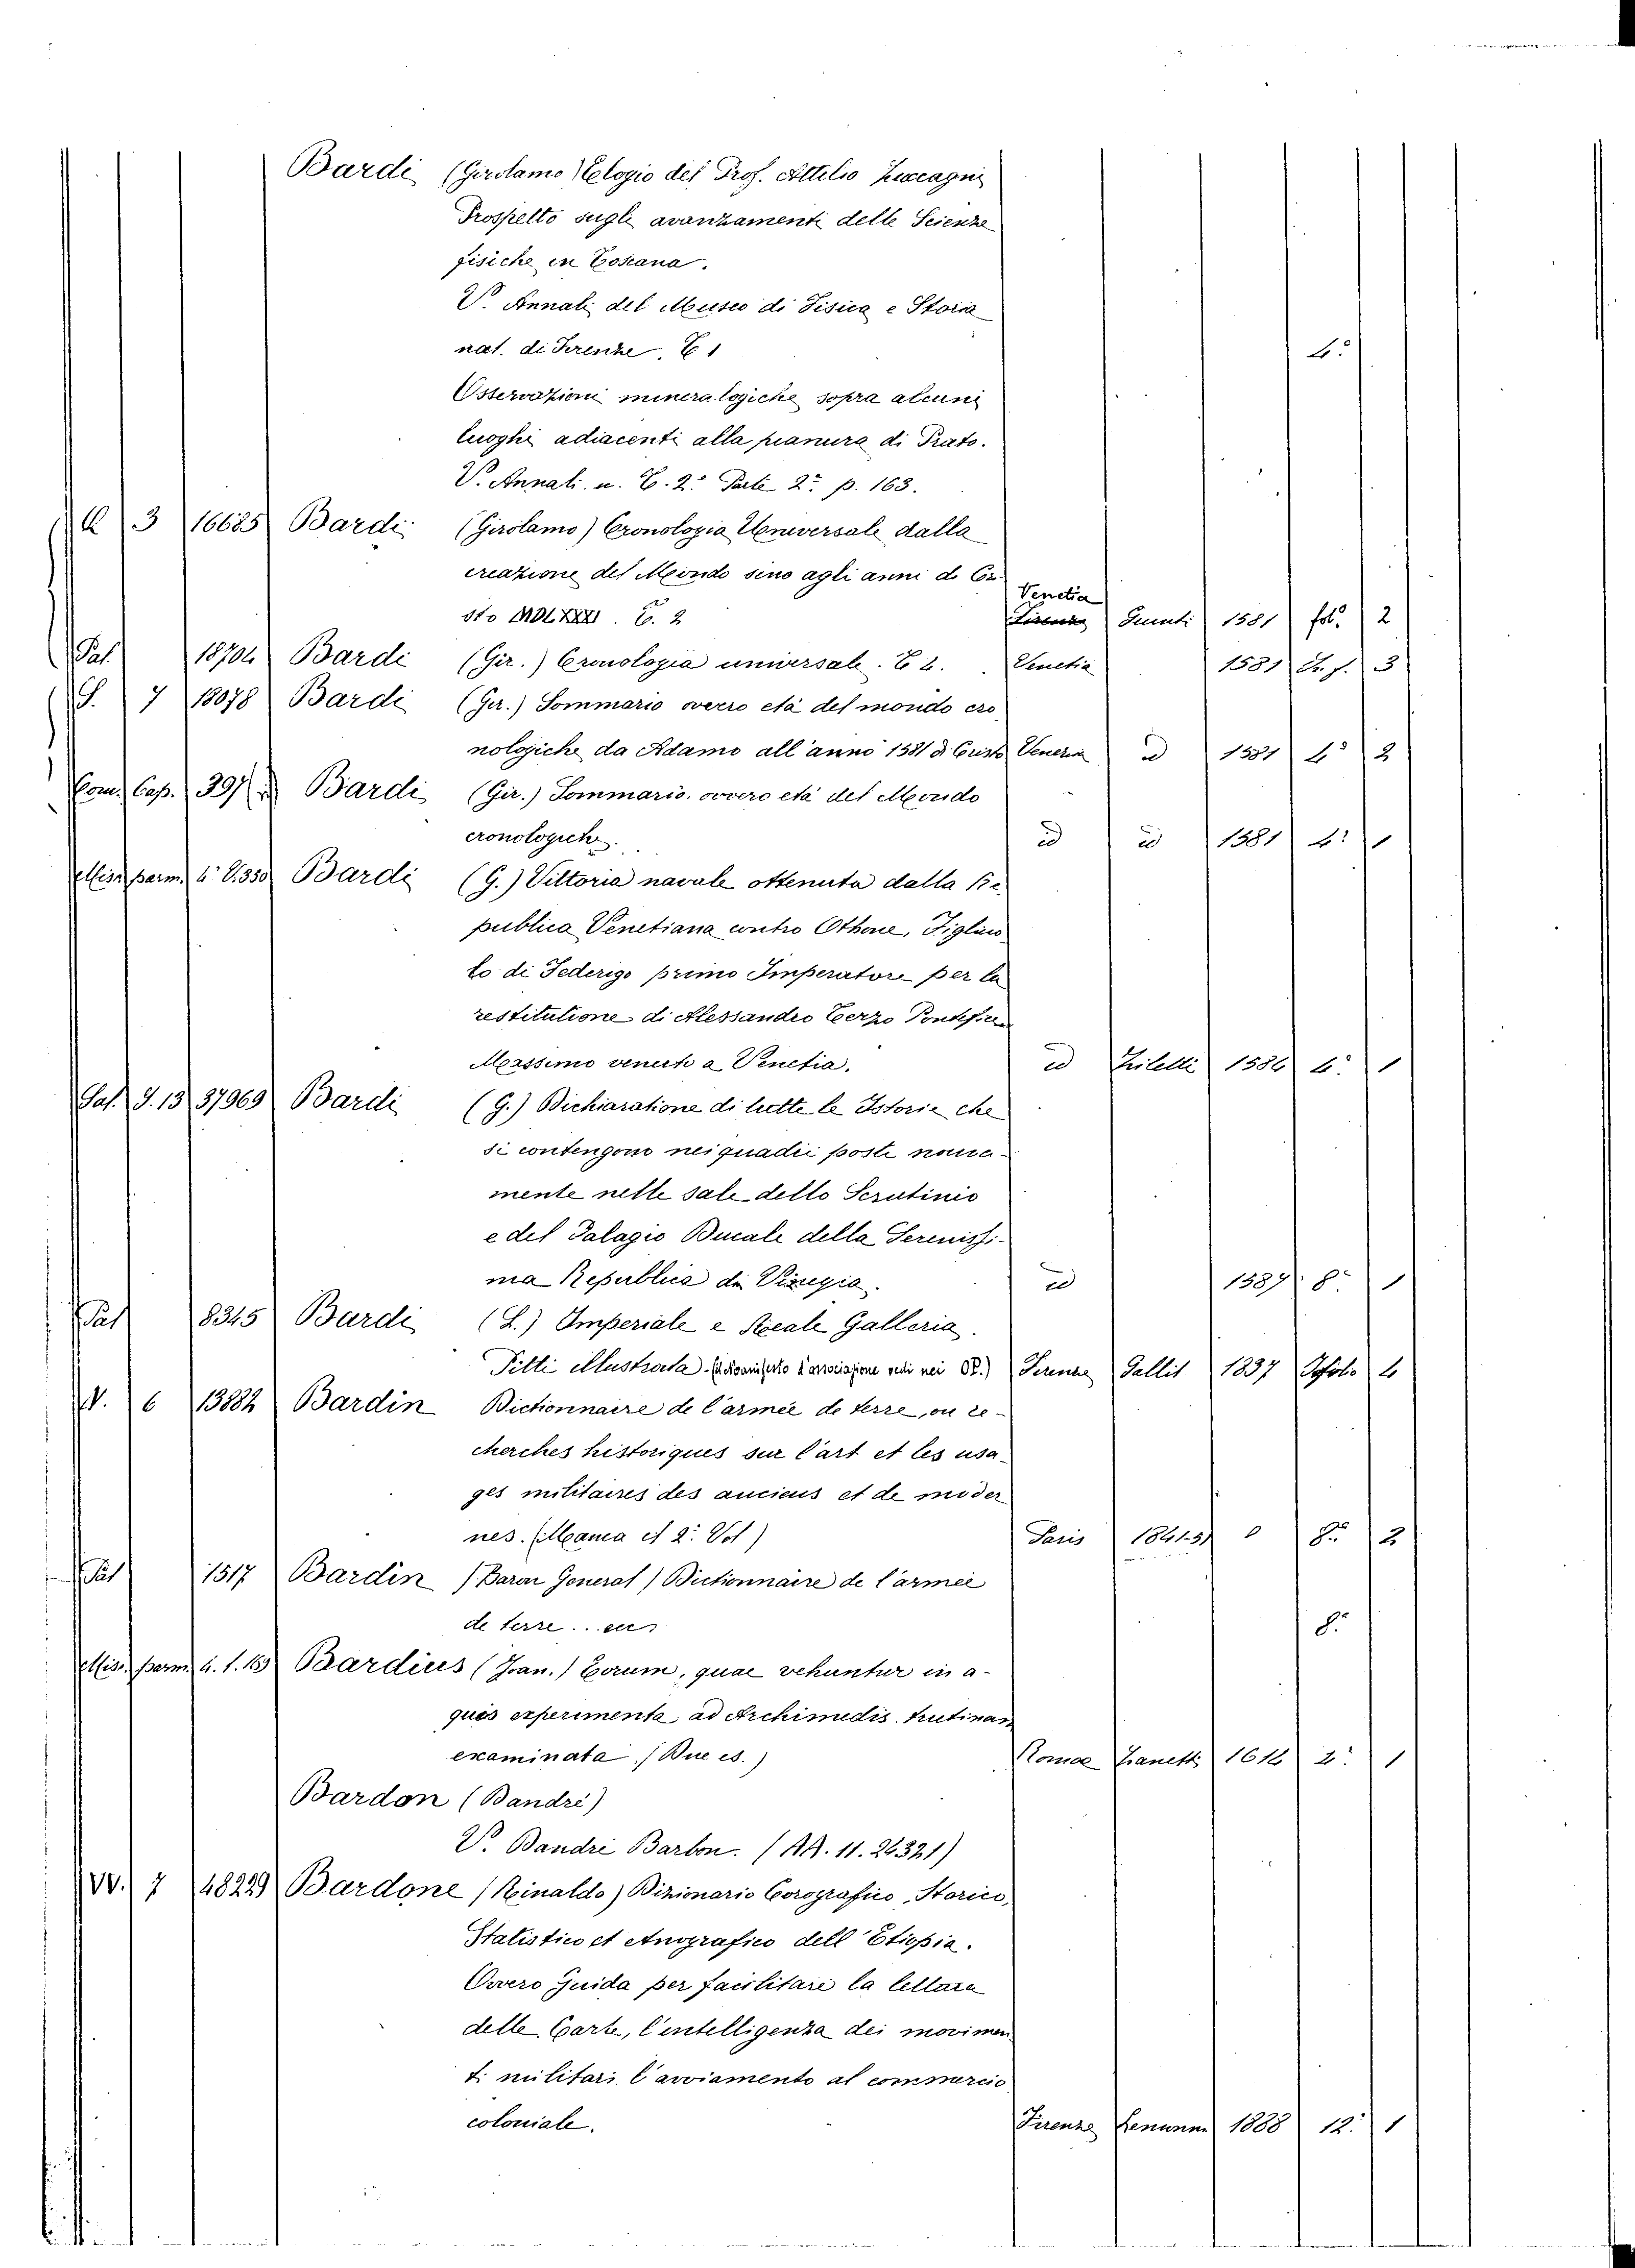 Bardi (Girolamo) Elogio del Prof. Attilio Zuccagni
Prospetto sugli avanzamenti delle Scienze
fisiche in Toscana.
V. Annali del Museo di Fisica e Storia
nat. di Firenze. T. 1 4.º
Osservazioni mineralogiche sopra alcuni
luoghi adiacenti alla pianura di Prato.
V. Annali. u. T. 2.º Parte 2.ª p. 163.
3 16685 Bardi (Girolamo) Cronologia Universale dalla
creazione del Mondo sino agli anni di Cri
sto MDLXXXI. T. 2 Venetia Giunti 1581 fol.º 2
Pal. 18704 Bardi (Gir.) Cronologia universale. Venetia 1581 3
G. 7 18078 Bardi (Gir.) Sommario overo età del mondo cro
nologiche da Adamo all'anno 1581 di Cristo Venezia id 1581 4.º 2
Com. Cap. 397 Bardi (Gir.) Sommario. ovvero età del Mondo
cronologiche. id id 1581 4.º 1
Misc. parm. 4.º V. 350 Bardi (G.) Vittoria navale ottenuta dalla Re
publica Venetiana contro Othone, Figliuo
lo di Federigo primo Imperatore per la
restitutione di Alessandro Terzo Pontefice
Massimo venuto a Venetia. id Ziletti 1584 4.º 1
Pal. G. 13 37969 Bardi (G.) Dichiaratione di tutte le Istorie che
si contengono nei quadri posti nova-
mente nelle sale dello Scrutinio
e del Palagio Ducale della Serenissi-
ma Republica di Vinegia. id 1587 8.º 1
Pal 8345 Bardi (L.) Imperiale e Reale Galleria.
Pitti illustrata. (il Manifesto d'associazione vedi nei OP.) Firenze Gallit. 1837 Ifolio 4
V. 6 13882 Bardin Dictionnaire de l'armée de terre, ou re-
cherches historiques sur l'art et les usa-
ges militaires des anciens et de moder
nes. (Manca il 2.º Vol) Paris 1841-51 8.º 2
Pal 1517 Bardin (Baron General) Dictionnaire de l'armée
de terre... etc 8.º
Misc. parm. 4. 1. 163 Bardius (Joan.) Eorum, quae vehuntur in a-
quis experimenta ad Archimedis trutinam
examinata. (Due es.) Romae Zanetti 1614 2.º 1
Bardon (Dandré)
V. Dandré Bardon. (AA. 11. 24321)
W. 7 48229 Bardone (Rinaldo) Dizionario Corografico, Storico,
Statistico et Anografico dell'Etiopia.
Ovvero Guida per facilitare la lettura
delle Carte, l'intelligenza dei movimen
ti militari l'avviamento al commercio
coloniale. Firenze 1888 12.º 1